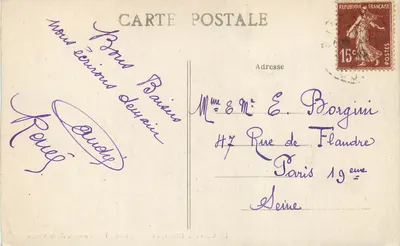 CARTE POSTALE
15c
POSTES
Adresse
Bons Baisers
nous écrirons demain
André
Renée
Mme & Mr E. Borgini
47 Rue de Flandre
Paris 19eme
Seine